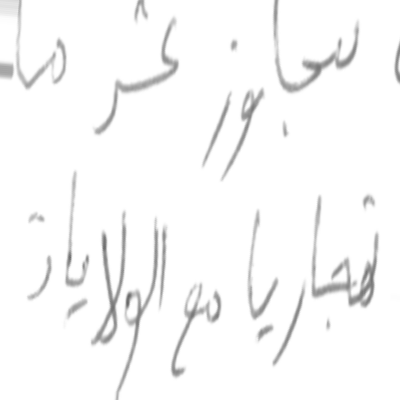 يتجاوز عشر ما
تجاريا مع الولايات